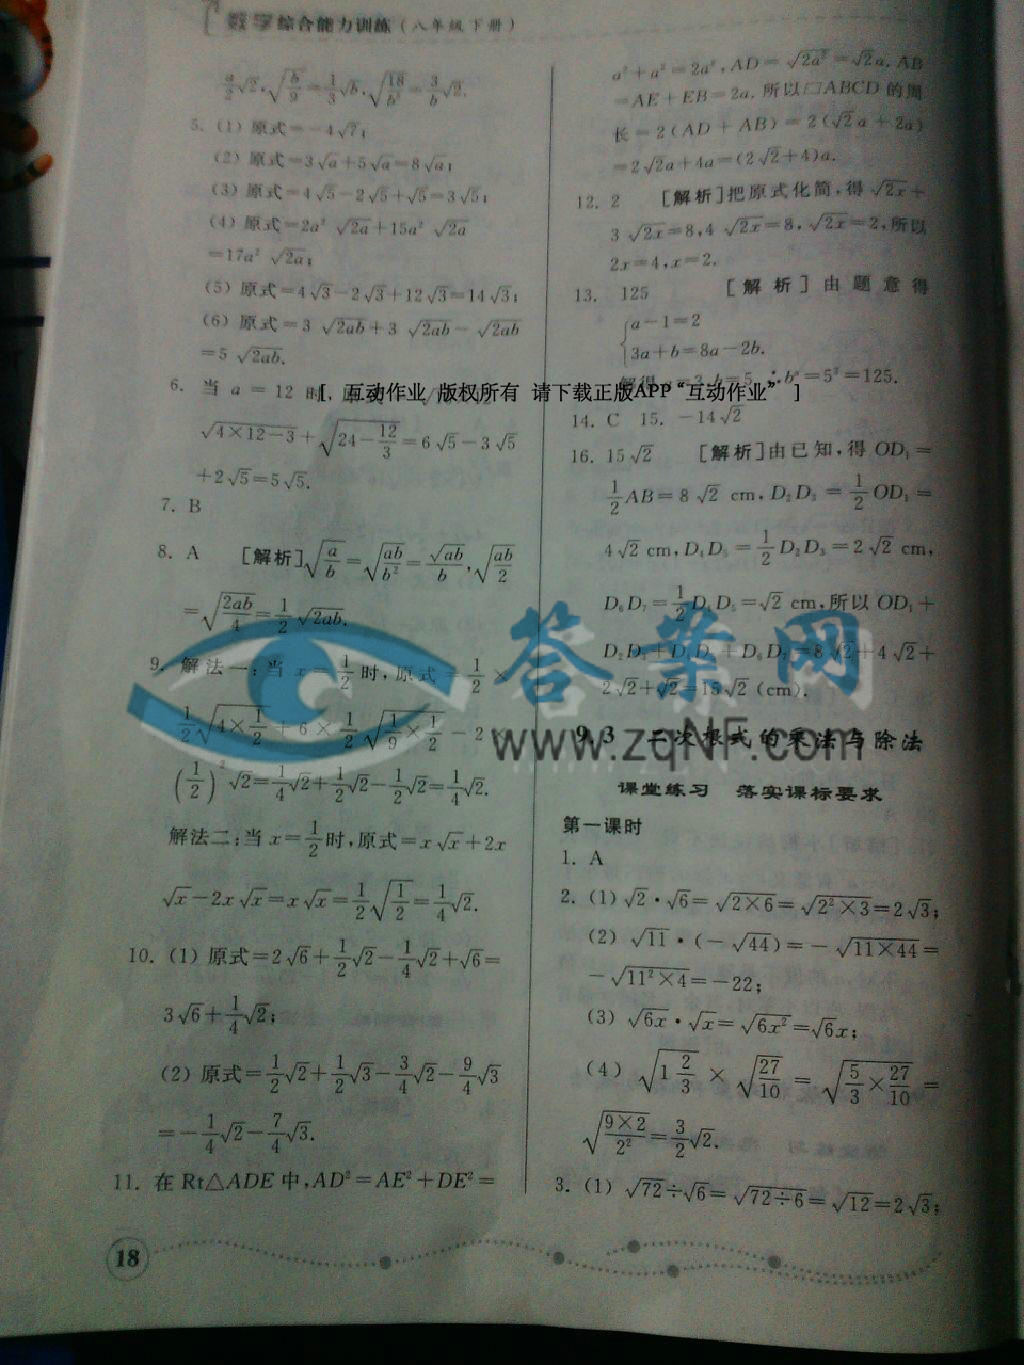 数学综合能力训练(八年级下册)
a/2√2,√(b/9)=1/3√b,√(18/b²)=3/b√2.
5. (1) 原式=-4√7;
(2) 原式=3√a+5√a=8√a;
(3) 原式=4√5-2√5+√5=3√5;
(4) 原式=2a² √2a+15a² √2a
=17a² √2a;
(5) 原式=4√3-2√3+12√3=14√3;
(6) 原式=3 √2ab+3 √2ab-√2ab
=5 √2ab.
6. 当 a = 12 时,
√(4×12-3)+√(24-12/3)=6√5-3√5
+2√5=5√5.
7. B
8. A [解析]√(a/b)=√(ab/b²)=√ab/b,√(ab/2)
=√(2ab/4)=1/2 √2ab.
9. 解法一:当 x=1/2 时,原式=1/2×
1/2√(4×1/2)+6×1/2√(1/9×1/2)-2×
(1/2)²√2=1/4√2+1/2√2-1/2√2=1/4√2.
解法二:当 x=1/2时,原式=x√x+2x
√x-2x√x=x√x=1/2√(1/2)=1/4√2.
10. (1) 原式=2√6+1/2√2-1/4√2+√6=
3√6+1/4√2;
(2) 原式=1/2√2+1/2√3-3/4√2-9/4√3
=-1/4√2-7/4√3.
11. 在 Rt△ADE 中,AD²=AE²+DE²=
18
a²+a²=2a²,AD=√(2a²)=√2a.AB
=AE+EB=2a.所以□ABCD 的周
长=2(AD+AB)=2(√2a+2a)
=2√2a+4a=(2√2+4)a.
12. 2 [解析]把原式化简,得√2x+
3 √2x=8,4 √2x=8,√2x=2,所以
2x=4,x=2.
13. 125 [解析]由题意得
{a-1=2
3a+b=8a-2b.
解得 a=3,b=5.∴bᵃ=5³=125.
[ 互动作业 版权所有 请下载正版APP“互动作业” ]
14. C 15. -14√2
16. 15√2 [解析]由已知,得 OD₁=
1/2AB=8√2 cm,D₂D₃=1/2OD₁=
4√2 cm,D₄D₅=1/2D₂D₃=2√2 cm,
D₆D₇=1/2D₄D₅=√2 cm,所以 OD₁+
D₂D₃+D₄D₅+D₆D₇=8√2+4√2+
2√2+√2=15√2 (cm).
答案网
www.zqNF.com
9.3 二次根式的乘法与除法
课堂练习 落实课标要求
第一课时
1. A
2. (1) √2·√6=√(2×6)=√(2²×3)=2√3;
(2) √11·(-√44)=-√(11×44)=
-√(11²×4)=-22;
(3) √6x·√x=√(6x²)=√6x;
(4) √(1 2/3)×√(27/10)=√(5/3×27/10)=
√(9×2/2²)=3/2√2.
3. (1) √72÷√6=√(72÷6)=√12=2√3;